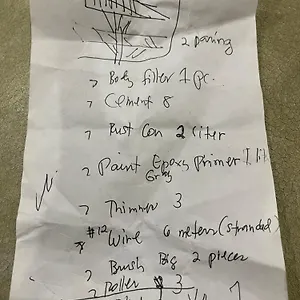 2
> Body filler 1 pc.
> Cement 8
> Rust Con 2 liter
> Paint Epoxy Primer 1 lit
Gray
> Thinner 3
> #12 Wire 6 meters (stranded)
> Brush Big 2 pieces
> Roller 3